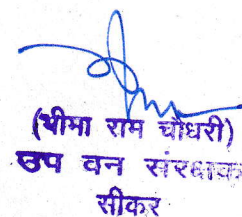 (भीमा राम चौधरी)
उप वन संरक्षक
सीकर